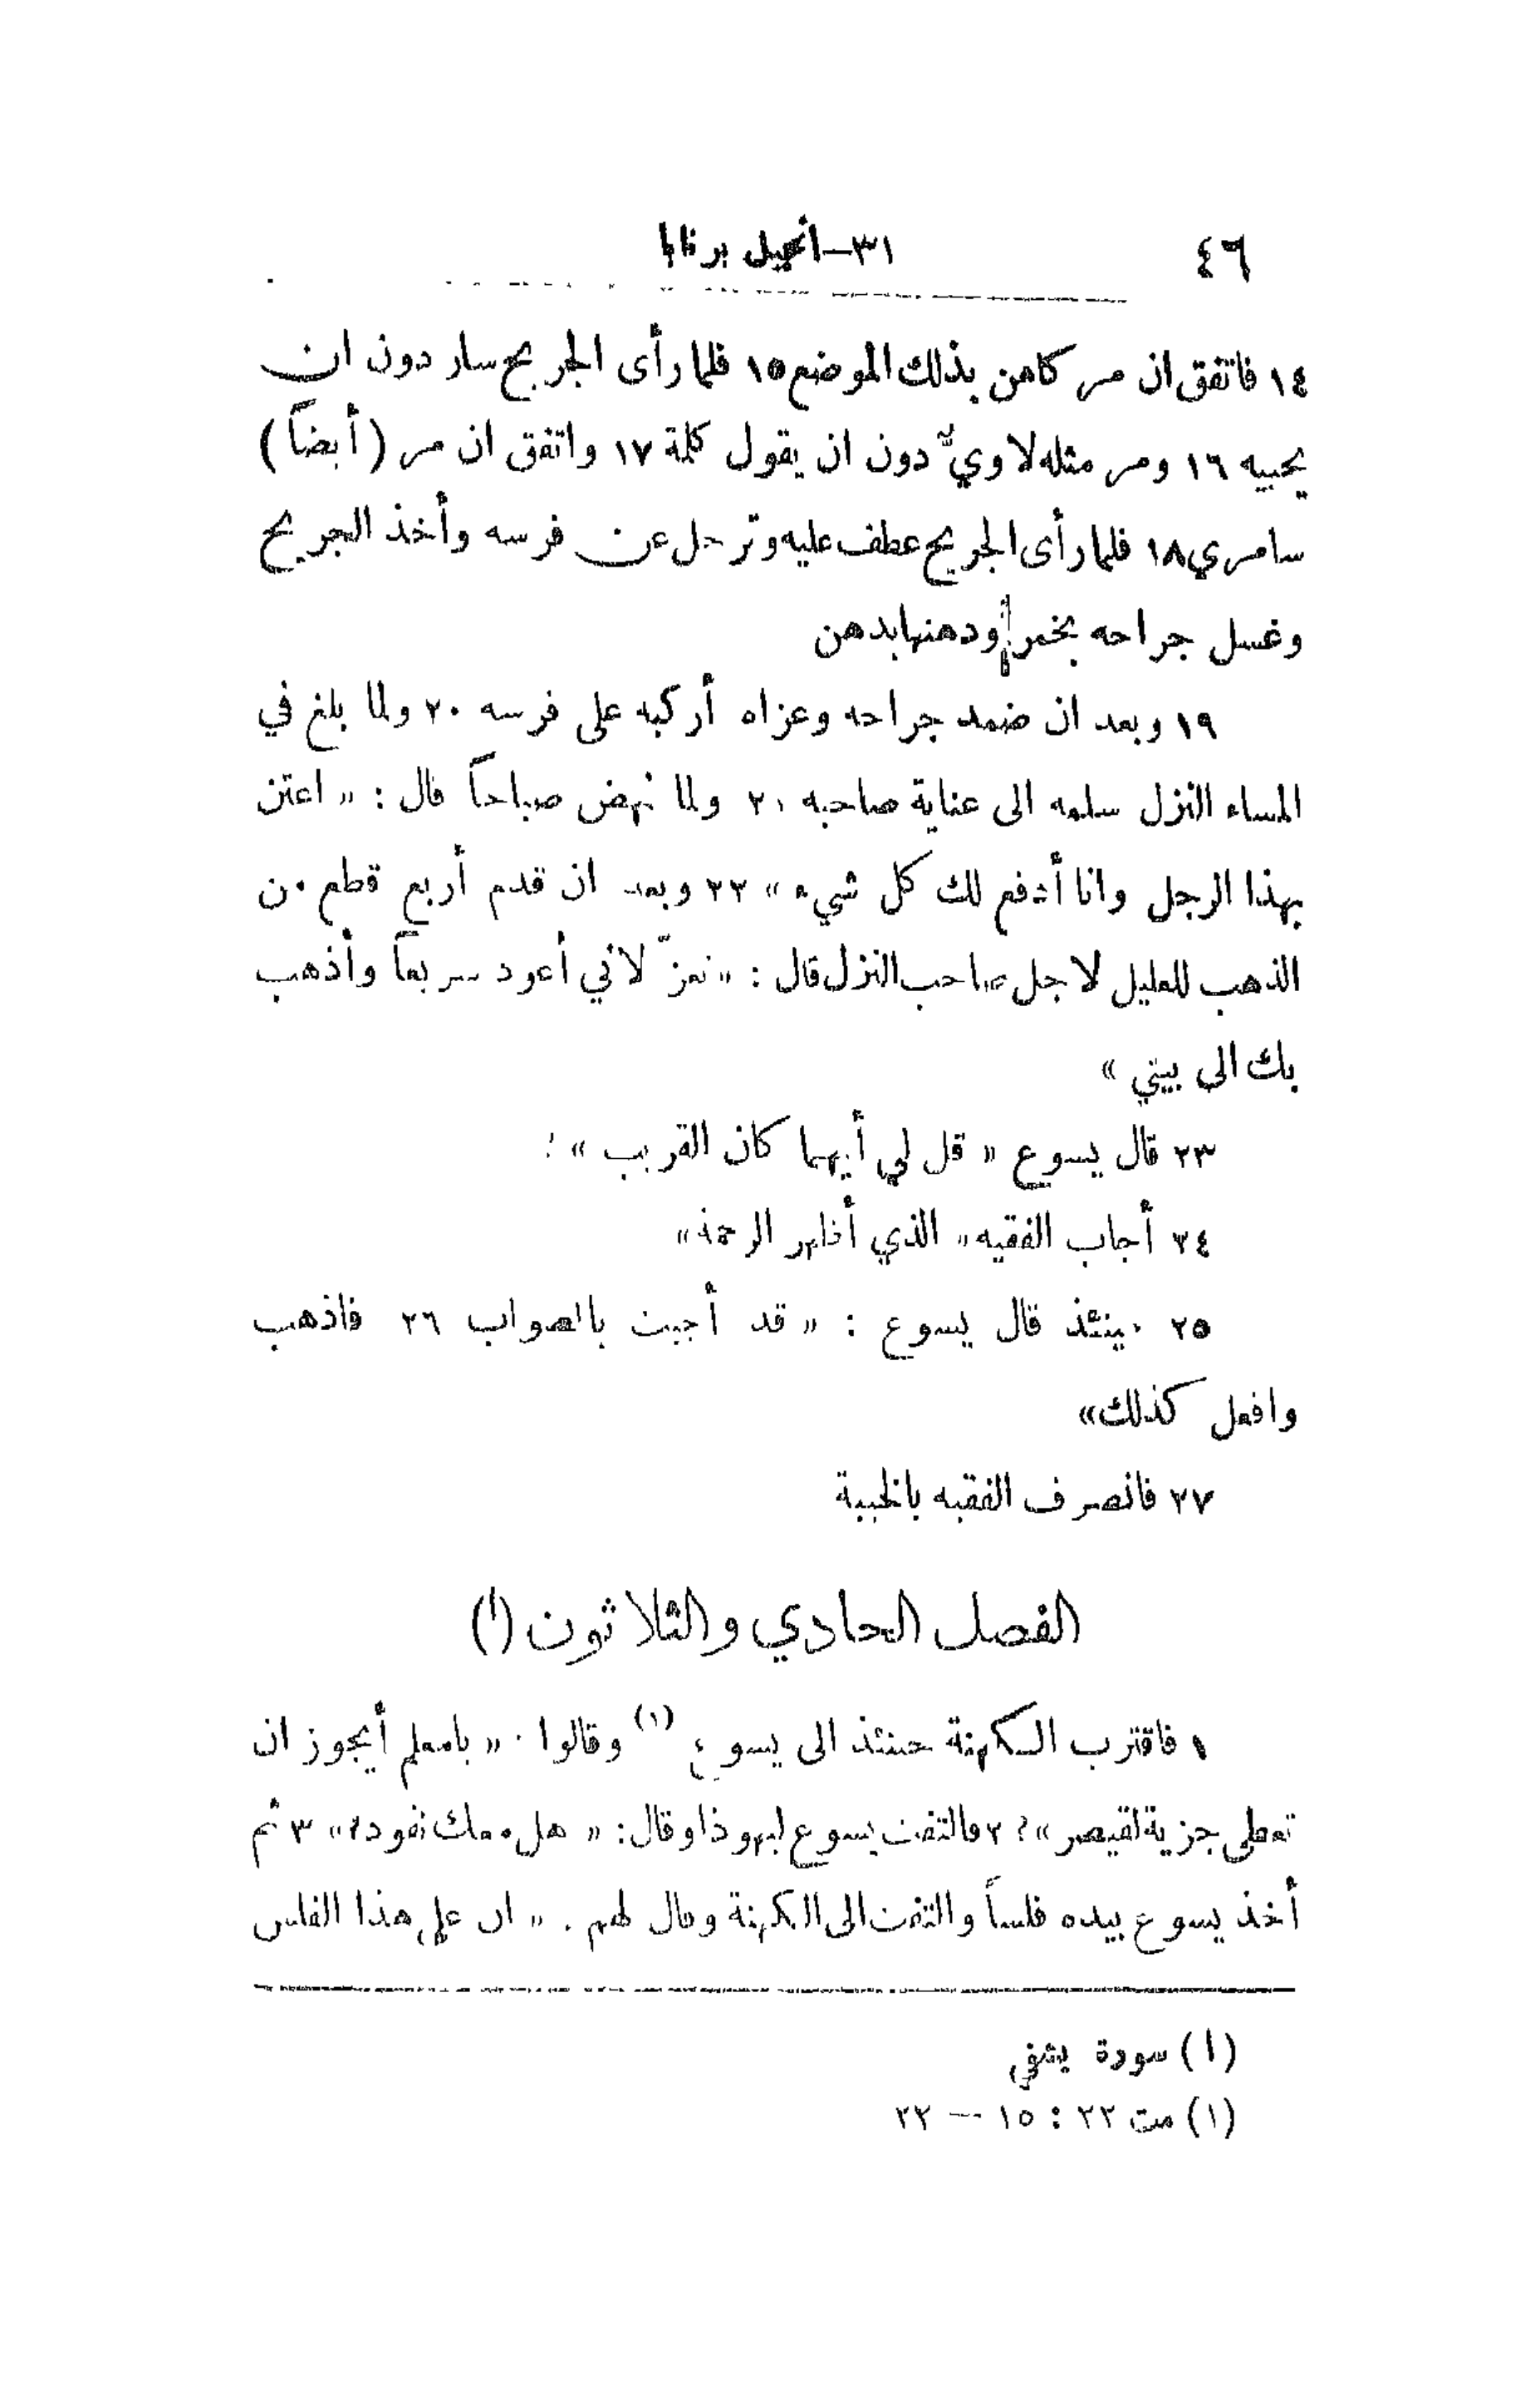 ٤٦
٣١—انجيل برنابا
١٤ فاتفق ان مر كاهن بذلك الموضع ١٥ فلما رأى الجريح سار دون ان
يحييه ١٦ ومر مثله لاويٌّ دون ان يقول كلمة ١٧ واتفق ان مر (أيضاً)
سامري ١٨ فلما رأى الجريح عطف عليه وترجل عن فرسه وأخذ الجريح
وغسل جراحه بخمر ودهنها بدهن
١٩ وبعد ان ضمد جراحه وعزاه أركبه على فرسه ٢٠ ولما بلغ في
المساء النزل سلمه الى عناية صاحبه ٢١ ولما نهض صباحاً قال : « اعتن
بهذا الرجل وانا أدفع لك كل شيء » ٢٢ وبعد ان قدم أربع قطع من
الذهب للعليل لاجل صاحب النزل قال : « تعزّ لاني أعود سريعاً وأذهب
بك الى بيتي »
٢٣ قال يسوع « قل لي أيهما كان القريب » ؟
٣٤ أجاب الفقيه « الذي أظهر الرحمة »
٢٥ حينئذ قال يسوع : « قد أجبت بالصواب ٢٦ فاذهب
وافعل كذلك»
٢٧ فانصرف الفقيه بالخيبة
الفصل الحادي والثلاثون (أ)
١ فاقترب الكهنة حينئذ الى يسوع (١) وقالوا : « يامعلم أيجوز ان
تعطى جزية لقيصر »؟ ٢ فالتفت يسوع ليهوذا وقال: « هل معك نقود؟» ٣ ثم
أخذ يسوع بيده فلساً والتفت الى الكهنة وقال لهم : « ان على هذا الفلس
(ا) سورة يشفي
(١) مت ٢٢ : ١٥ — ٢٢